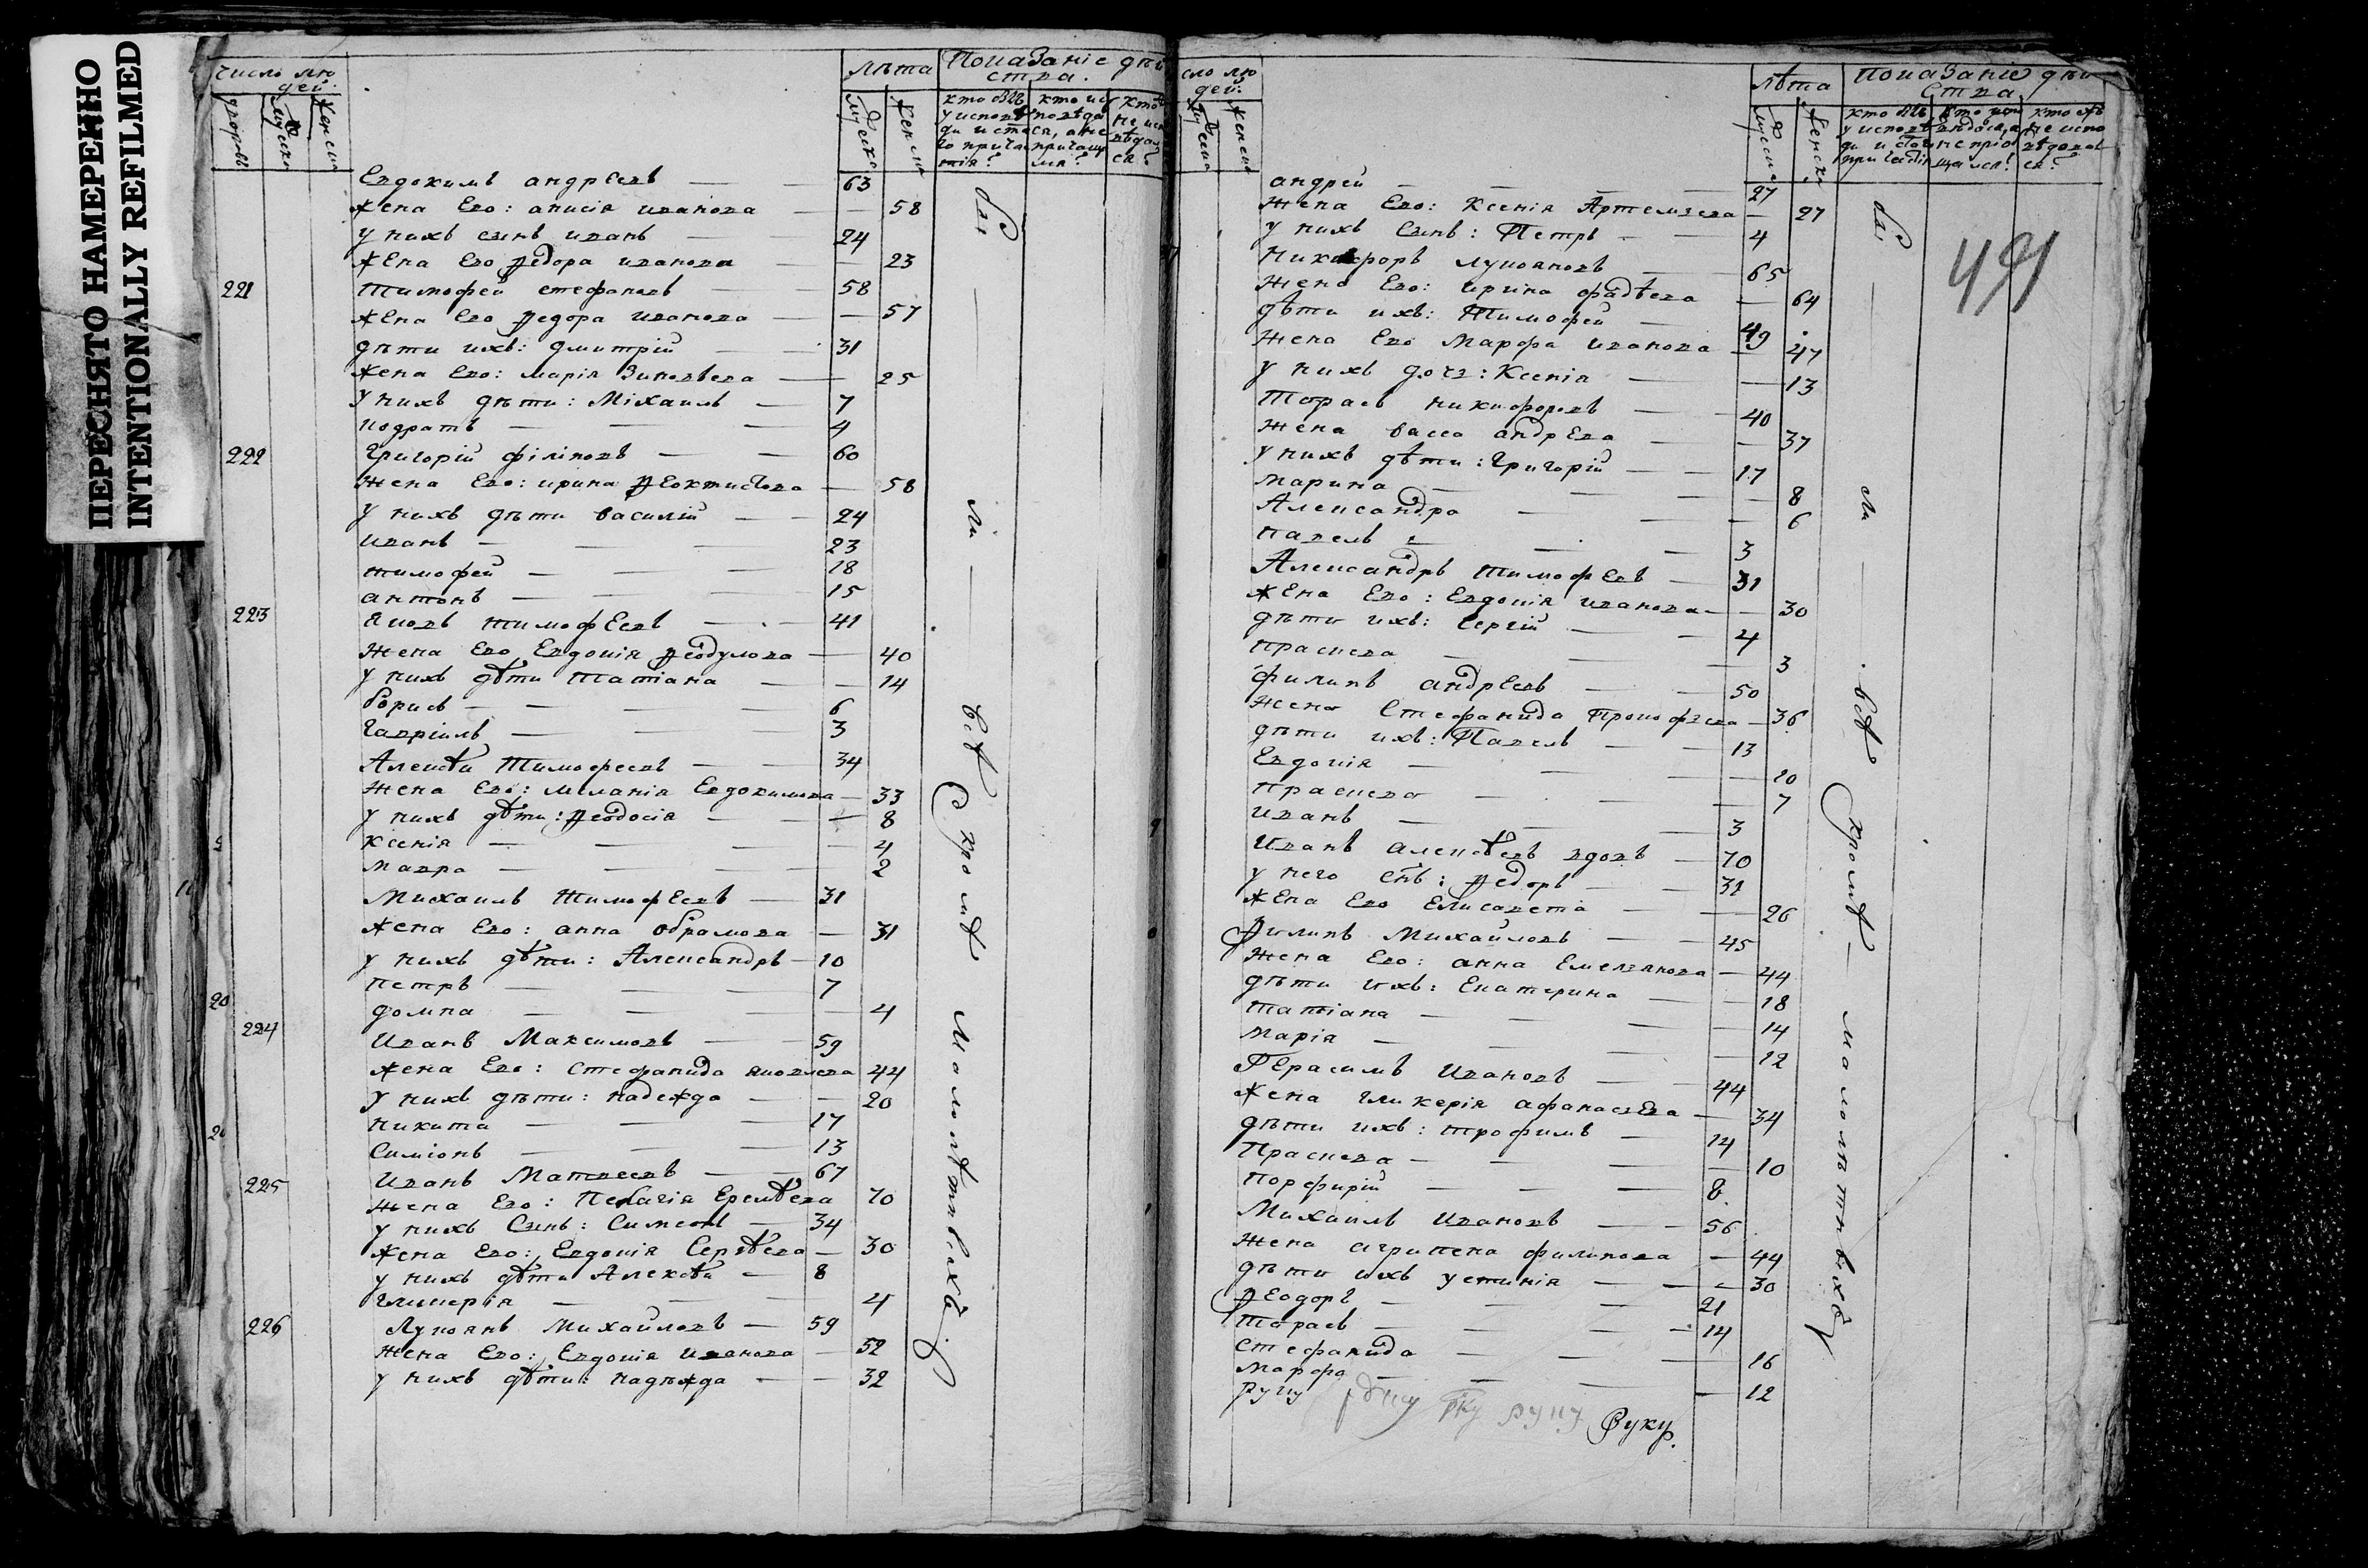 ПЕРЕСНЯТО НАМЕРЕННО
INTENTIONALLY REFILMED
число лю
дей
дворовъ
мужеска
женска
лѣта
Показаніе дѣй
ства.
мужеска
женска
кто былъ
у исповѣ
ди и свѧта
го прича
тія?
кто ис
повѣда
сѧ, а не
причащ
лсѧ?
кто
не исп
овѣдал
сѧ?
Евдокимъ андрѣевъ — 63
жена Его: анисіѧ иванова — 58
у нихъ сынъ иванъ — 24
жена Его Ѳедора иванова — 23
221 Тимофей стефановъ — 58
жена Его Ѳедора иванова — 57
дѣти ихъ: дмитрій — 31
жена Его: маріѧ Зиновѣева — 25
у нихъ дѣти: Міхаилъ — 7
кодратъ — 4
222 Григорій філіповъ — 60
жена Его: ирина Ѳеоктистова — 58
у нихъ дѣти василій — 24
иванъ — 23
тимофей — 18
антонъ — 15
223 ѧковъ тимофЕевъ — 41
жена Его Евдокіѧ Ѳеодулова — 40
у нихъ дѣти Татіана — 14
борисъ — 6
Гавріилъ — 3
Алексѣй Тимофеевъ — 34
жена Его: меланіѧ Евдокимова — 33
у нихъ дѣти: Ѳеодосіѧ — 8
ксеніѧ — 4
мавра — 2
Михаилъ ТимофЕевъ — 31
жена Его: анна обрамова — 31
у нихъ дѣти: Александръ — 10
петръ — 7
домна — 4
224 Иванъ Максимовъ — 59
жена Его: Стефанида ѧковлева 44
у нихъ дѣти: надежда — 20
никита — 17
Симіонъ — 13
225 Иванъ Матвеевъ — 67
жена Его: Пелагіѧ Еремѣева 70
у нихъ Сынъ: Симеонъ — 34
жена Его: Евдокіѧ Сергѣева — 30
у нихъ дѣти Алексѣй — 8
гликеріѧ — 4
226 Лукоѧнъ Михайловъ — 59
жена Его: Евдокіѧ иванова — 52
у нихъ дѣти: надѣжда — 32
бы
ли
всѣ
кромѣ
малолѣтнъихъ
сло лю
дей.
мужеска
женска
лѣта
Показаніе дѣй
ства
мужеска
женска
491
андрей — 27
жена Его: Ксеніѧ Артемьева — 27
у нихъ Сынъ: Петръ — 4
Никифоръ лукоѧновъ — 65
жена Его: ирина фадѣева — 64
дѣти ихъ: Тимофей — 49
жена Его Марфа иванова — 47
у нихъ дочь: Ксеніѧ — 13
Тарасъ никифоровъ — 40
жена васса андрЕева — 37
у нихъ дѣти: Григорій — 17
Марина — 8
Александра — 6
павелъ — 3
Александръ тимофЕевъ — 31
жена Его: Евдокіѧ иванова — 30
дѣти ихъ: Сергій — 4
праскева — 3
филипъ андрЕевъ — 50
жена Стефанида Прокофьева — 36
дѣти ихъ: Павелъ — 13
Евдокіѧ — 10
Праскева — 7
иванъ — 3
Иванъ алексѣевъ вдовъ — 70
у него снъ: Ѳедоръ — 31
жена Его Елисавета — 26
Филипъ Михайловъ — 45
жена Его: анна Емельѧнова — 44
дѣти ихъ: Екатерина — 18
татіана — 14
Маріѧ — 12
Герасимъ Ивановъ — 44
жена гликеріѧ афанасьЕва — 34
дѣти ихъ: трофимъ — 14
Праскева — 10
Порфирій — 8
Михаилъ Ивановъ — 56
жена агрипена филипова — 44
дѣти ихъ устиніѧ — 30
Ѳеодоръ — 21
тарасъ — 14
Стефанида — 16
Марфа — 12
руку
руку
Руку
бы
ли
всѣ
кромѣ
малолѣтнъихъ